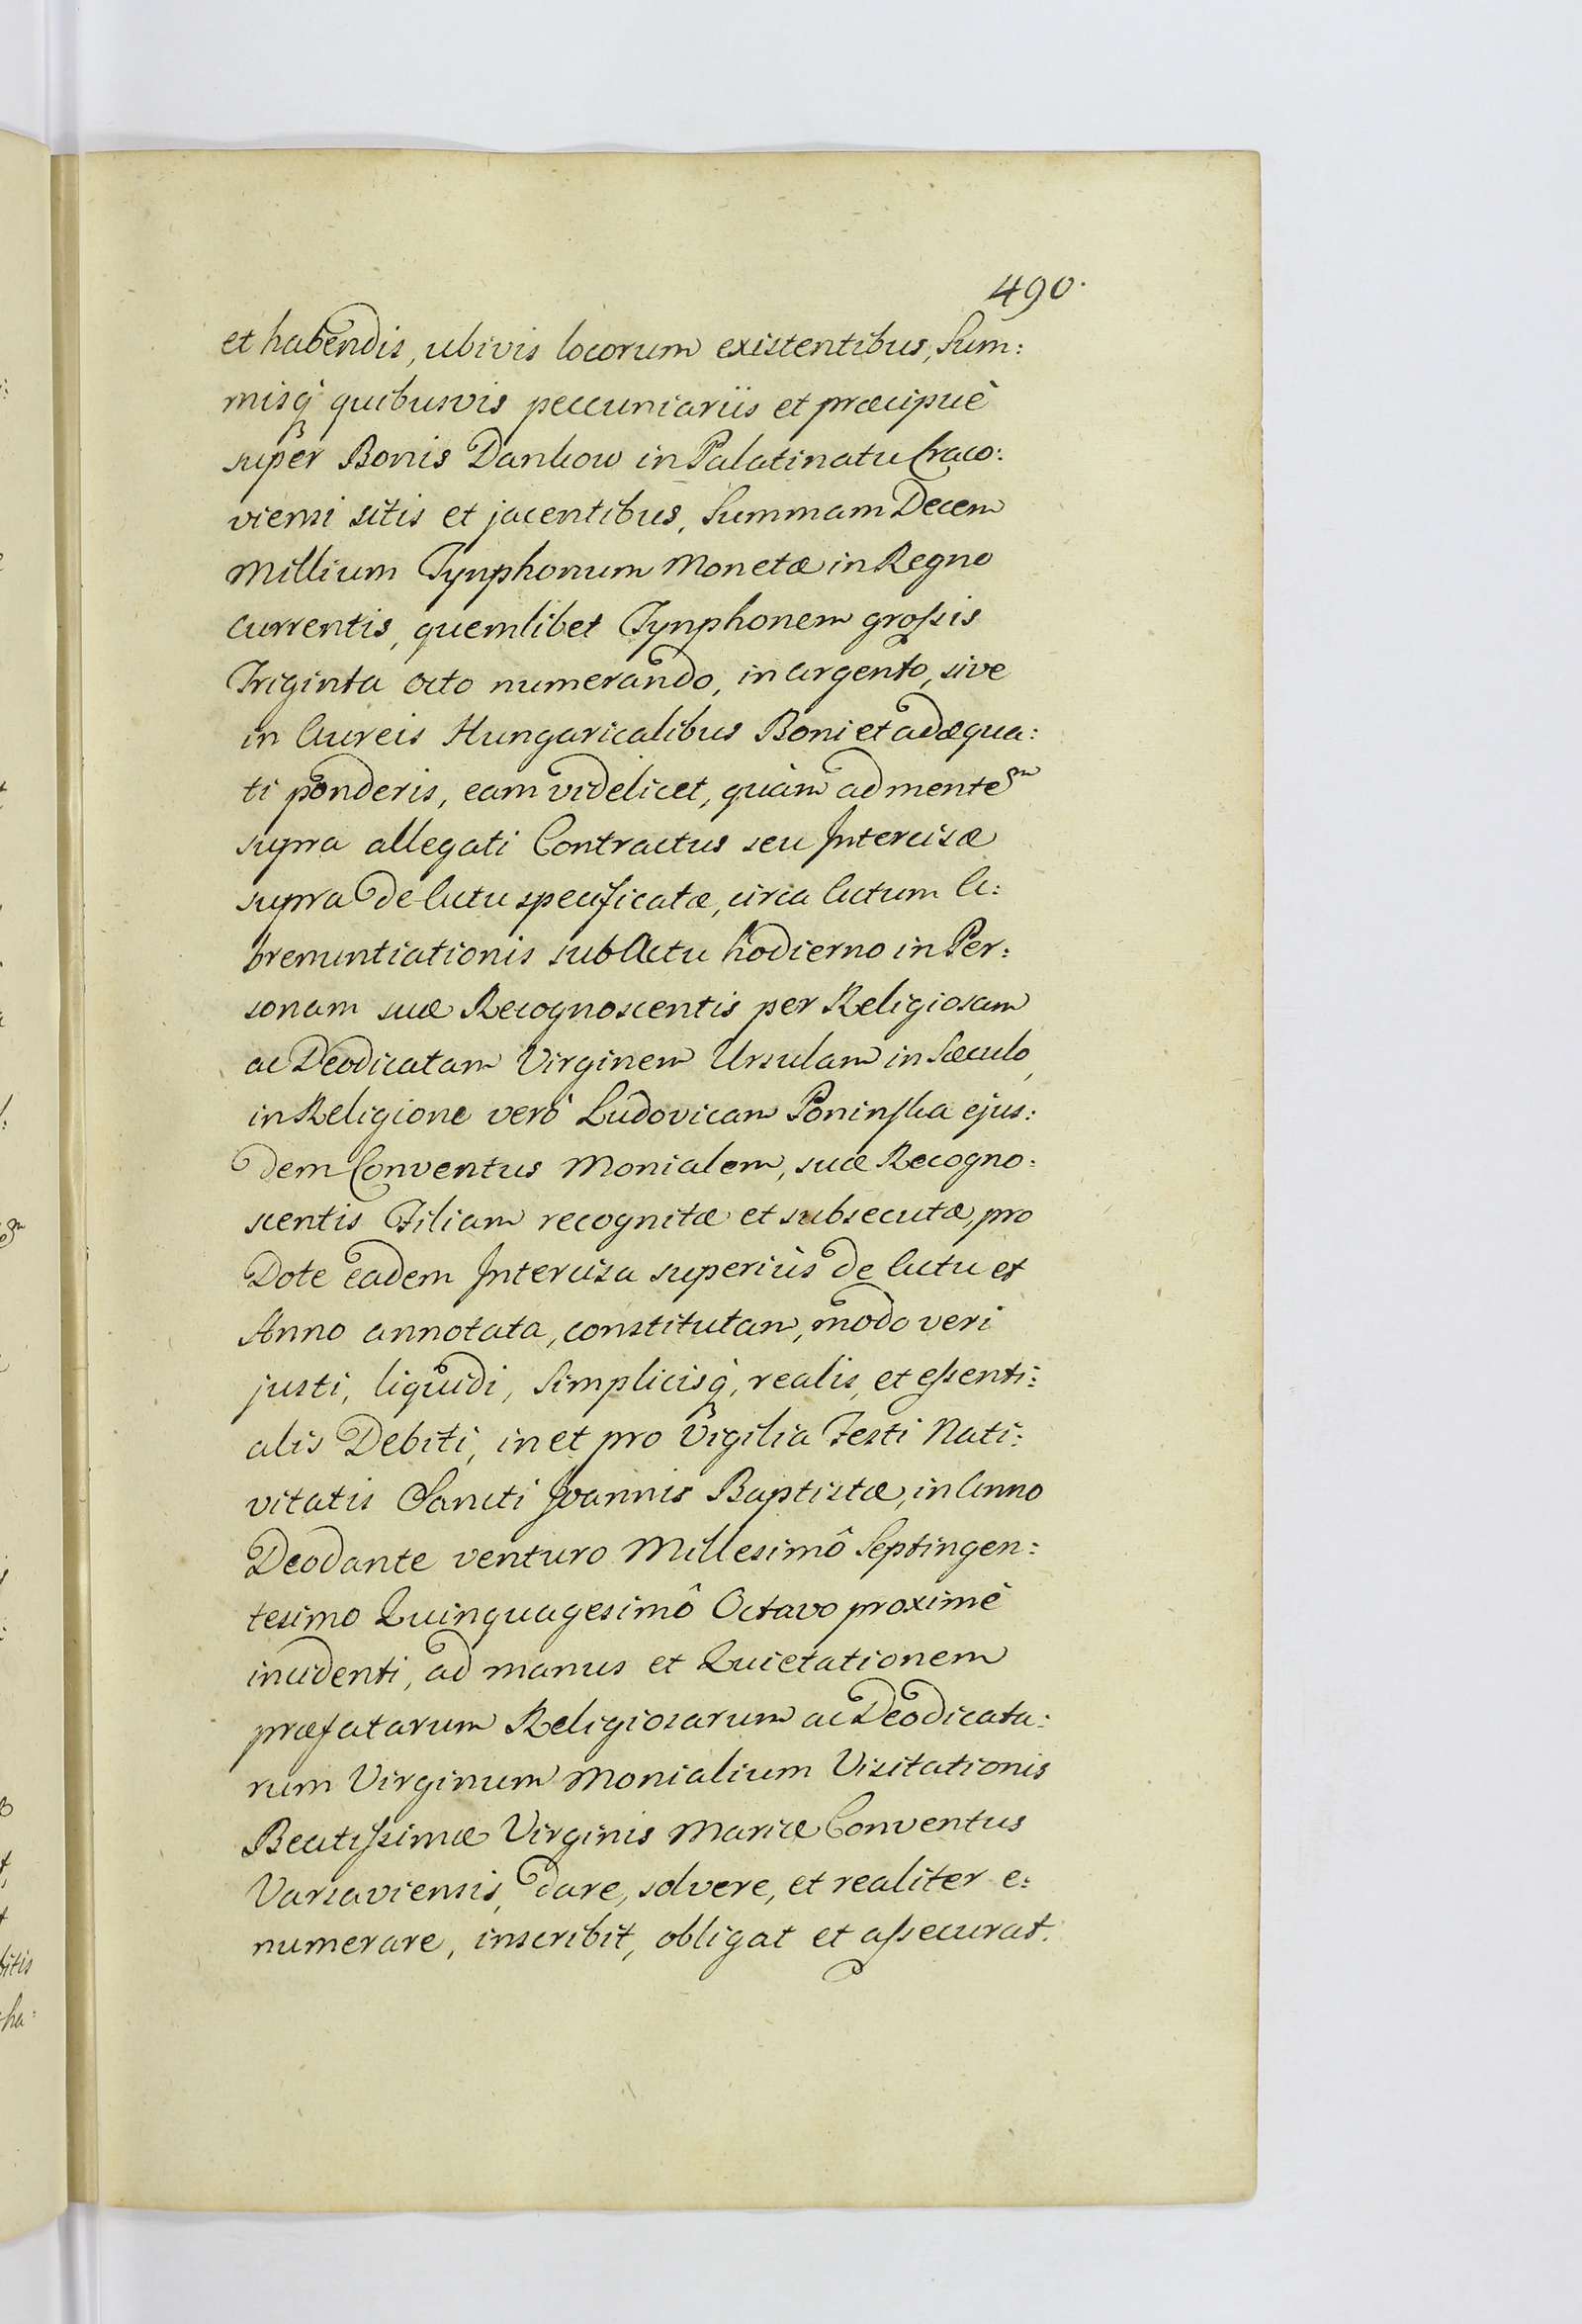 490.
et habendis, ubivis locorum existentibus, Sum:
misq̃ quibusvis peccuniariis et præcipuè
super Bonis Dankow in Palatinatu Craco:
viensi sitis et jacentibus, Summam Decem
Millium Tynphonum Monetæ in Regno
Currentis, quemlibet Tynphonem grossis
Triginta octo numerando, in argento, sive
in Aureis Hungaricalibus Boni et adæqua:
ti ponderis, eam videlicet, quàm ad mentem
supra allegati Contractus seu Intercisæ
supra de Actu specificatæ, circa Actum A:
brenuntiationis sub Actu hodierno in Per:
sonam suæ Recognoscentis per Religiosam
ac Deodicatam Virginem Ursulam in Sæculo,
in Religione verò Ludovicam Poninska ejus:
dem Conventus Monialem, suæ Recogno:
scentis Filiam recognitæ et subsecutæ, pro
Dote eadem Intercisa superiùs de Actu et
Anno annotata, constitutam, modo veri
justi, liquidi, Simplicisq̃, realis, et essenti:
alis Debiti, in et pro Vigilia Festi Nati:
vitatis Sancti Joannis Baptistæ, in Anno
Deodante venturo Millesimô Septingen:
tesimo Quinquagesimô Octavo proximè
incidenti, ad manus et Quietationem
præfatarum Religiosarum ac Deodicata:
rum Virginum Monialium Visitationis
Beatissimæ Virginis Mariæ Conventus
Varsaviensis, dare, solvere, et realiter e:
numerare, inscribit, obligat et assecurat.